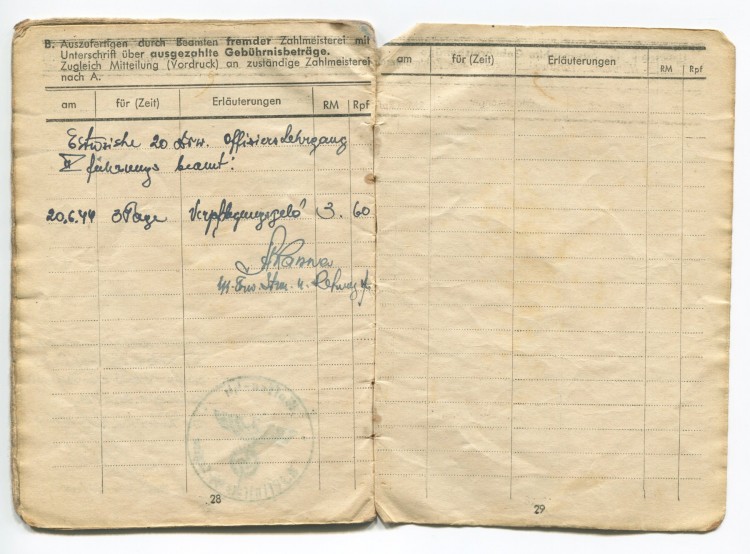 B. Auszufertigen durch Beamten fremder Zahlmeisterei mit
Unterschrift über ausgezahlte Gebührnisbeträge.
Zugleich Mitteilung (Vordruck) an zuständige Zahlmeisterei
nach A.
am für (Zeit) Erläuterungen RM Rpf
20 Offizierslehrgang
führungs beamt.
20.6.44 3 Tage Verpflegungsgeld 3. 60
28
am für (Zeit) Erläuterungen RM Rpf
29